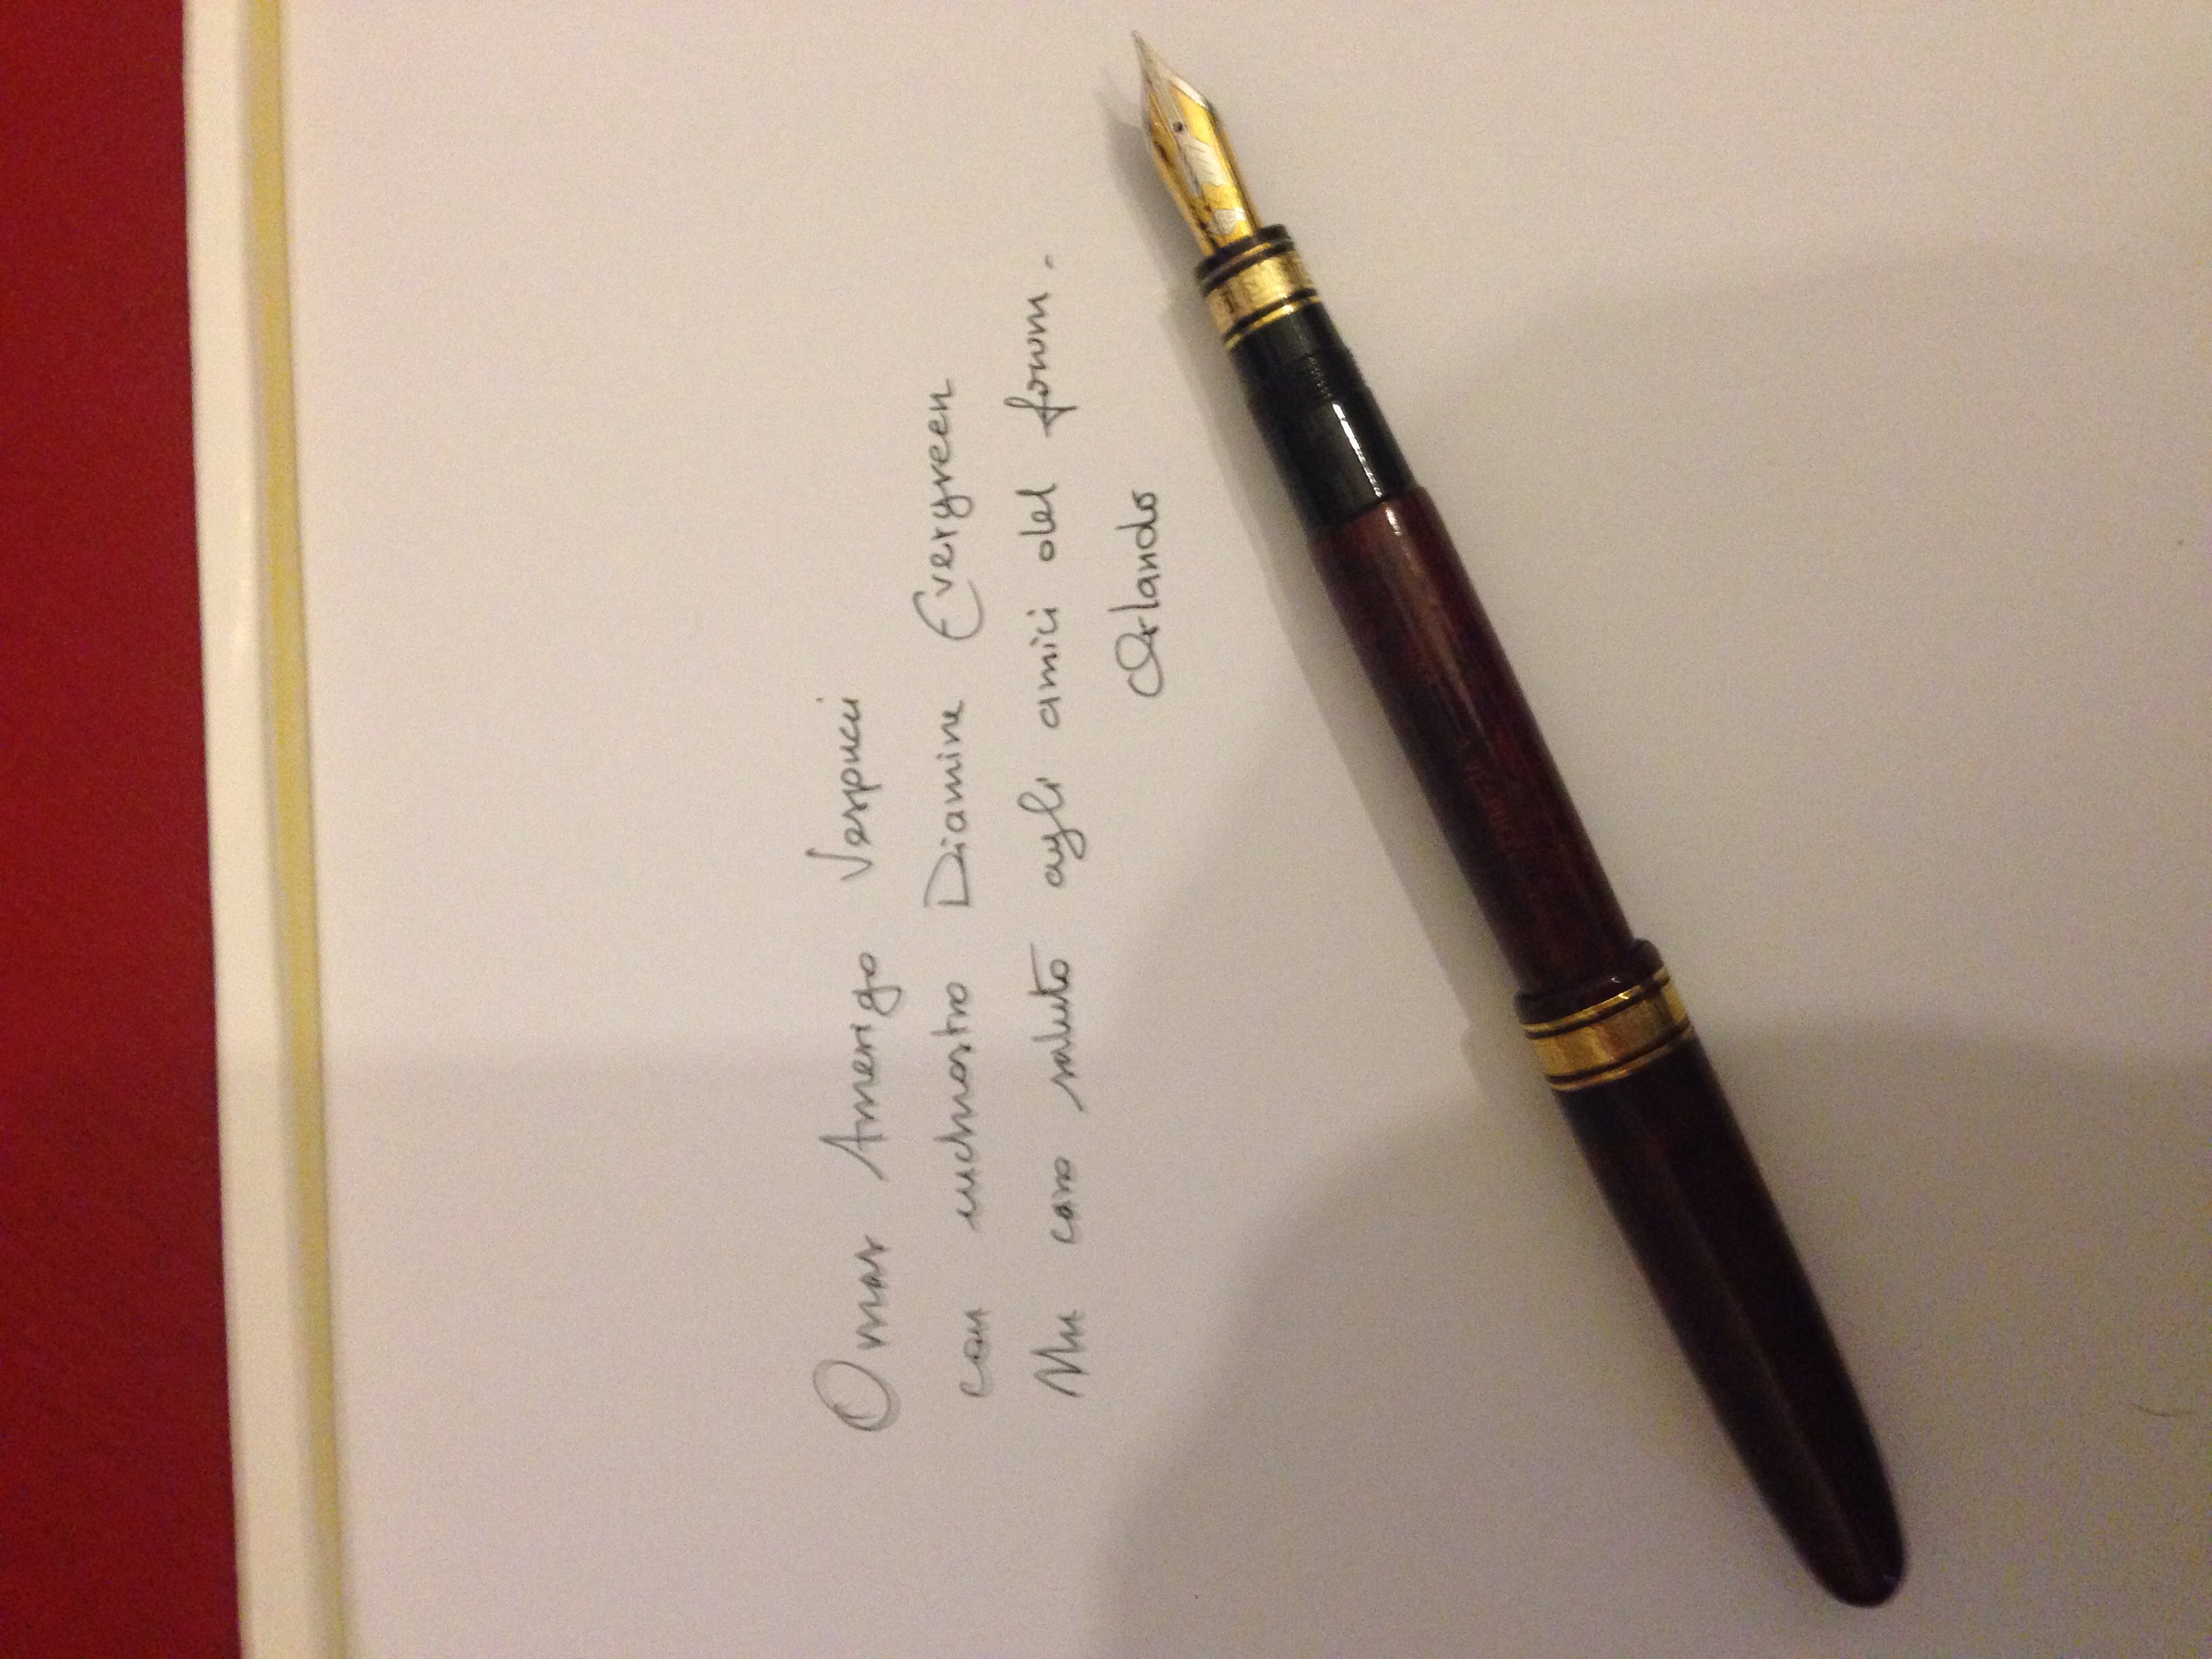 Omas Amerigo Vespucci
con inchiostro Diamine Evergreen
Un caro saluto agli amici del forum.
Orlando